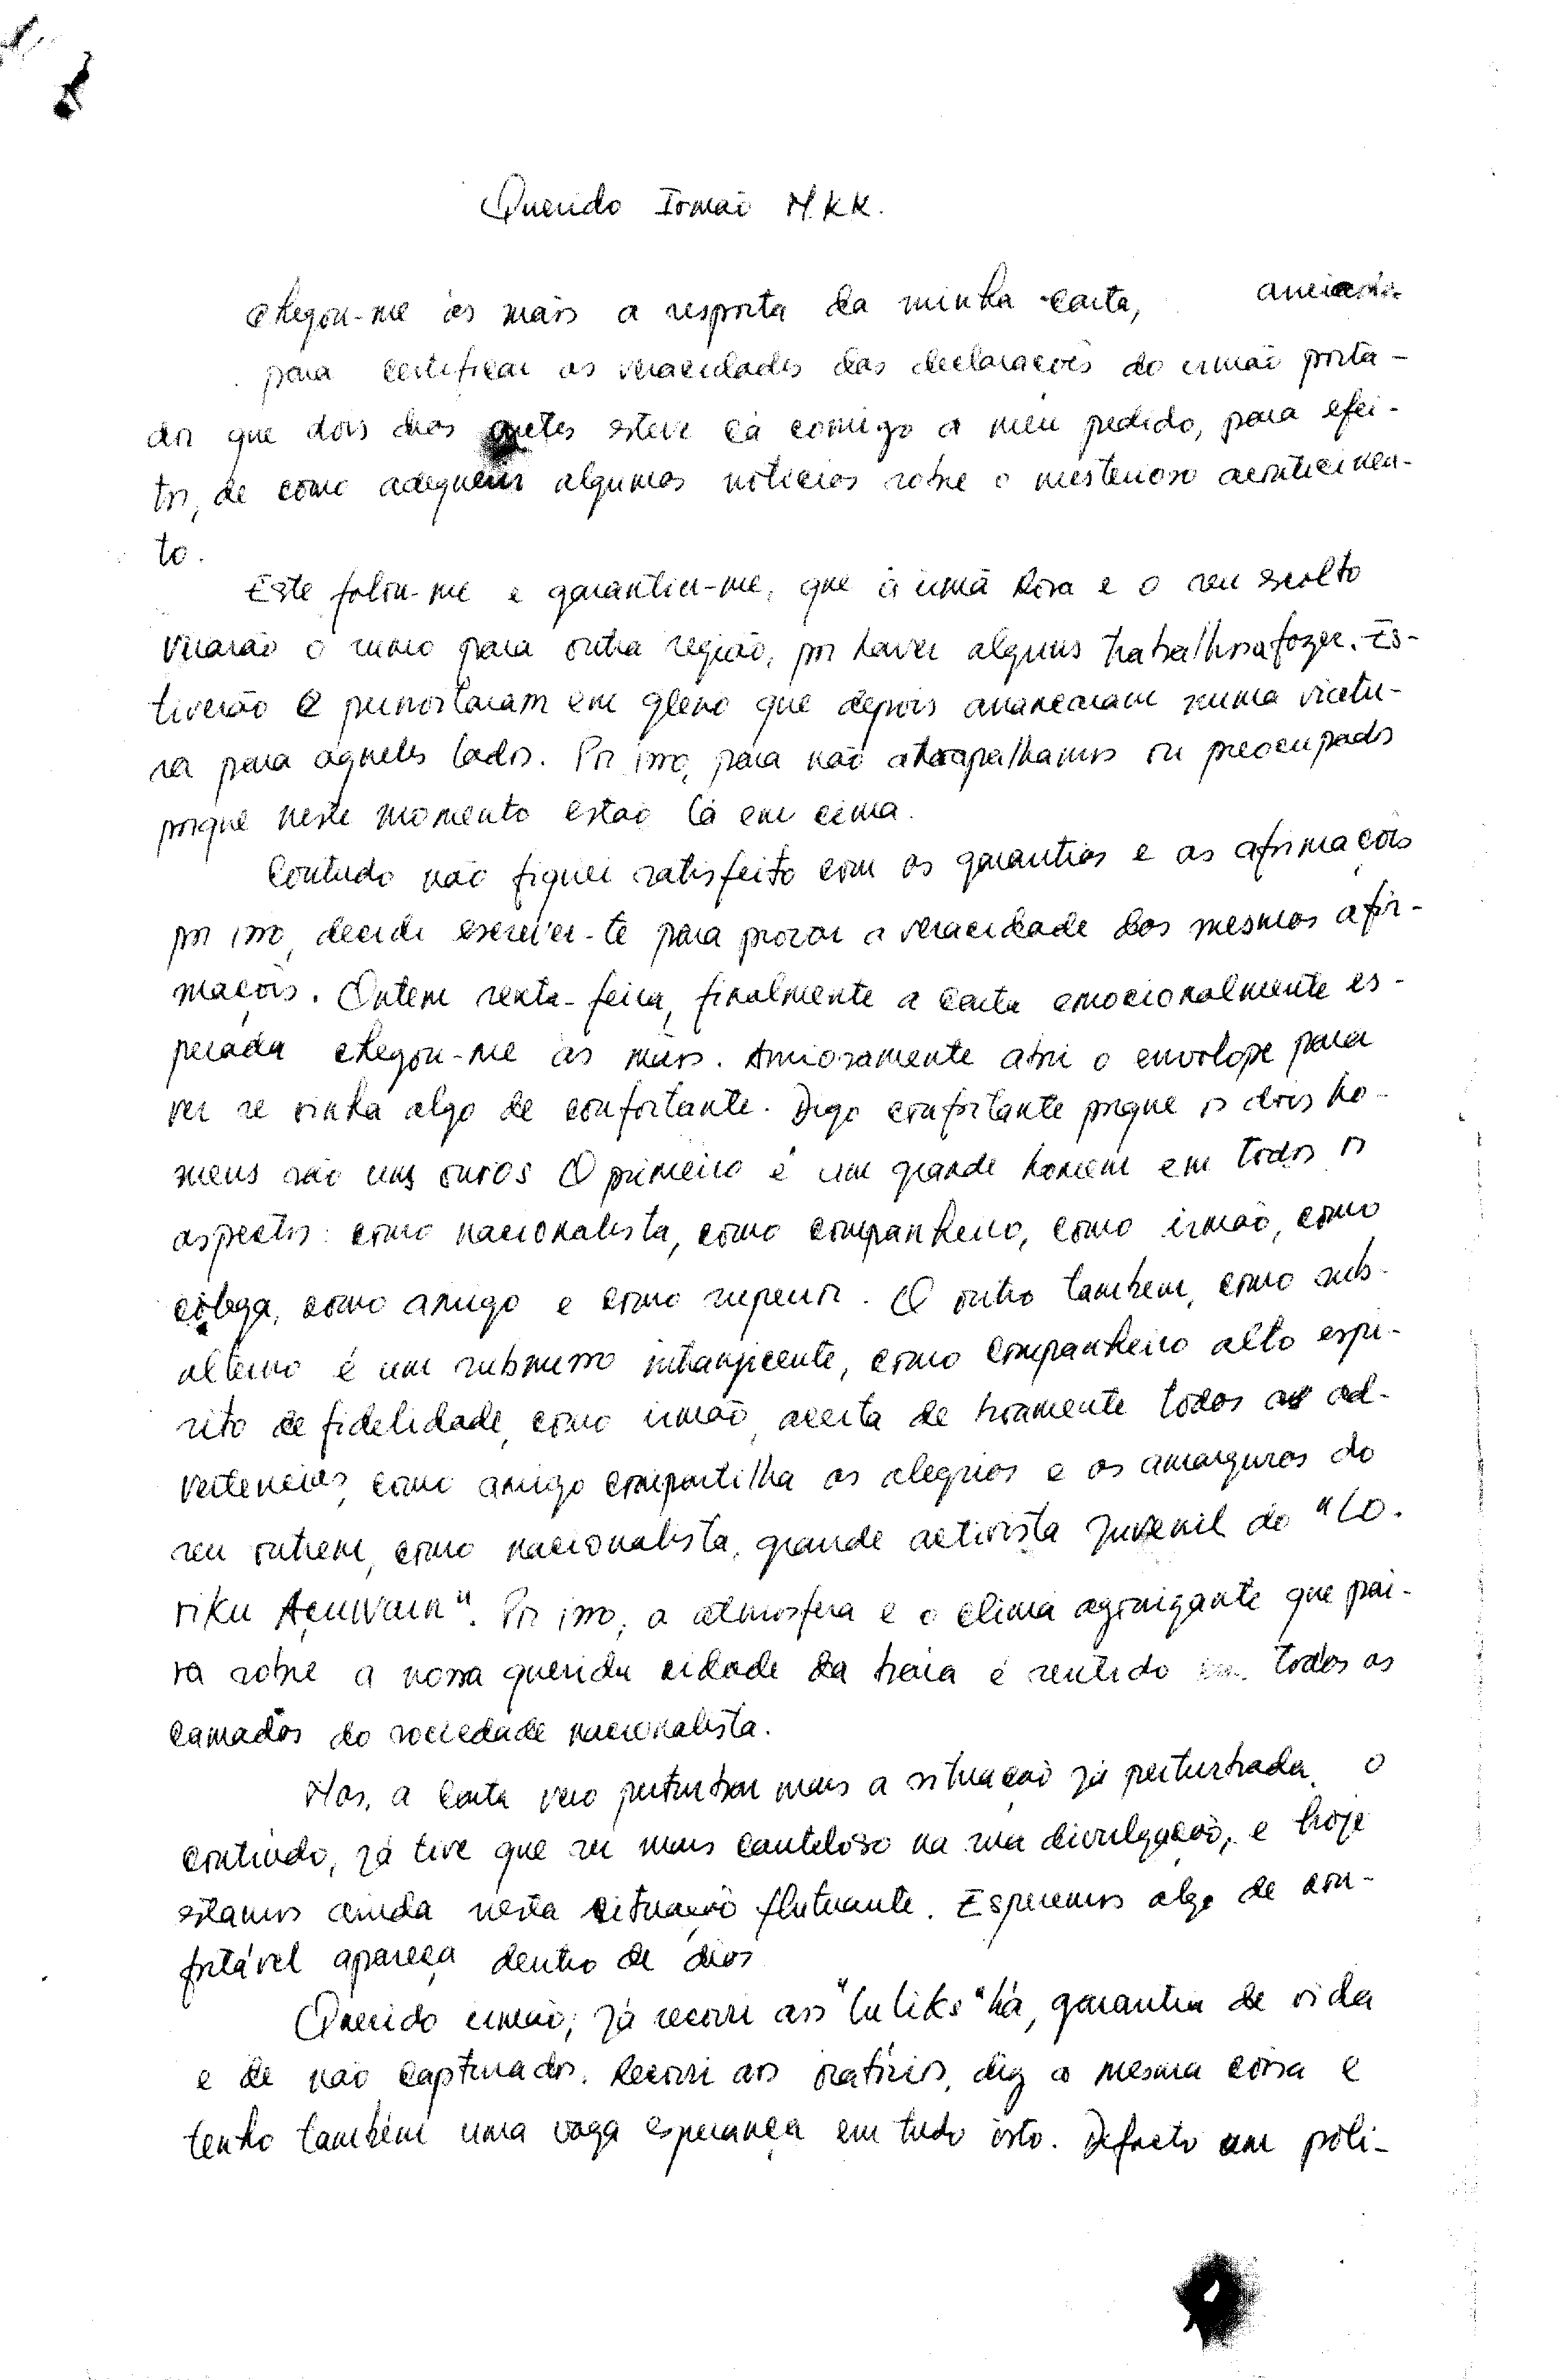 Querido Irmão M.KK.
Chegou-me às mãos a resposta da minha carta,
para certificar as veracidades das declarações do irmão porta-
dor que dois dias antes esteve cá comigo a meu pedido, para efei-
tos, de como adquerir algumas noticias sobre o misterioso acontecimen-
to.
Este falou-me e garantiu-me, que a irmã Rosa e o seu escolto
virarão o rumo para outra região, por haver alguns trabalhos a fazer. Es-
tiverão e pernoitaram em gleno que depois arrancaram numa viatu-
ra para aqueles lados. Por isso, para não atrapalhamos ou preocupados
porque neste momento estão lá em cima.
Contudo não fiquei satisfeito com as garantias e as afirmações
por isso, decidi escrever-te para provar a veracidade das mesmas afir-
mações. Ontem sexta-feira, finalmente a carta emocionalmente es-
perada chegou-me às mãos. Ansiosamente abri o envolope para
ver se vinha algo de confortante. Digo confortante porque os dois ho-
mens são uns ouros O primeiro é um grande homem em todos os
aspectos: como nacionalista, como companheiro, como irmão, como
colega, como amigo e como superior. O outro também, como sub-
alterno é um submisso intransicente, como companheiro alto espi-
rito de fidelidade, como irmão, aceita de boamente todas as ad-
vertencias, como amigo compartilha as alegrias e as amarguras do
seu outrem, como nacionalista, grande activista juvenil do "LO.
riku Açuwain". Por isso, a atmosfera e o clima agonizante que pai-
ra sobre a nossa querida cidade da praia é sentido em todas as
camadas da sociedade nacionalista.
Mas, a carta veio perturbar mais a situação já perturbada. O
contiudo, já tive que ser mais cauteloso na sua divulgação, e hoje
estamos ainda nesta situação flutuante. Esperemos algo de con-
fortável apareça dentro de dias
Querido irmão, já recorri aos "luliks" há, garantia de vida
e de não capturados. Recorri aos oratórios, diz a mesma coisa e
tenho também uma vaga esperança em tudo isto. Defacto um poli-